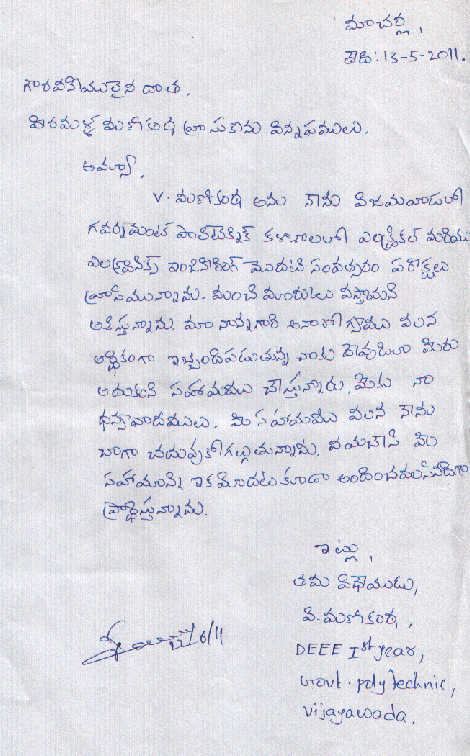 మాచర్ల,
తేది: 13-5-2011.
గౌరవనీయులైన దాత,
వీరమళ్ల మణికంఠ వ్రాసుకొను విన్నపములు.
అమ్మా,
V. మణికంఠ అను నేను విజయవాడలో
గవర్నమెంట్ పాలిటెక్నిక్ కళాశాలలో ఎలక్ట్రికల్ మరియు
ఎలక్ట్రానిక్స్ ఇంజనీరింగ్ మొదటి సంవత్సరం పరీక్షలు
వ్రాసియున్నాను. మంచి మార్కులు వస్తాయని
ఆశిస్తున్నాను. మా నాన్నగారి అనారోగ్యము వలన
ఆర్థికంగా ఇబ్బందిపడుతున్న మాకు దేవుడిలా మీరు
ఆదుకుని సహాయము చేస్తున్నారు. మీకు నా
ధన్యవాదములు. మీ సహాయము వలన నేను
బాగా చదువుకోగల్గుతున్నాను. దయచేసి మీ
సహాయాన్ని ఇక మీదట కూడా అందించవలసినదిగా
ప్రార్థిస్తున్నాను.
ఇట్లు,
తమ విధేయుడు,
వి. మణికంఠ,
DEEE Ist year,
Govt. polytechnic,
vijayawada.
6/11